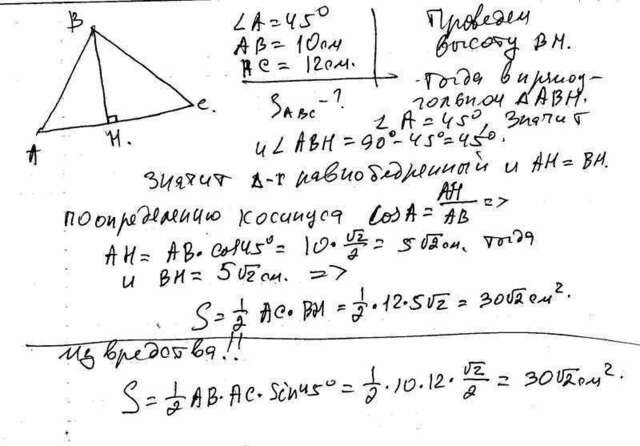 B
A
H.
C.
∠A = 45°
AB = 10см
AC = 12см.
S_ABC - ?
Проведем
высоту BH.
Тогда в прямоу-
гольном ΔABH.
∠A = 45°, значит
и ∠ABH = 90° - 45° = 45°.
Значит Δ-к равнобедренный и AH = BH.
По определению косинуса cosA = AH/AB =>
AH = AB · cos45° = 10 · √2/2 = 5√2 см. Тогда
и BH = 5√2 см. =>
S = 1/2 AC · BH = 1/2 · 12 · 5√2 = 30√2 см².
Из вредства!!
S = 1/2 AB · AC · Sin45° = 1/2 · 10 · 12 · √2/2 = 30√2 см².